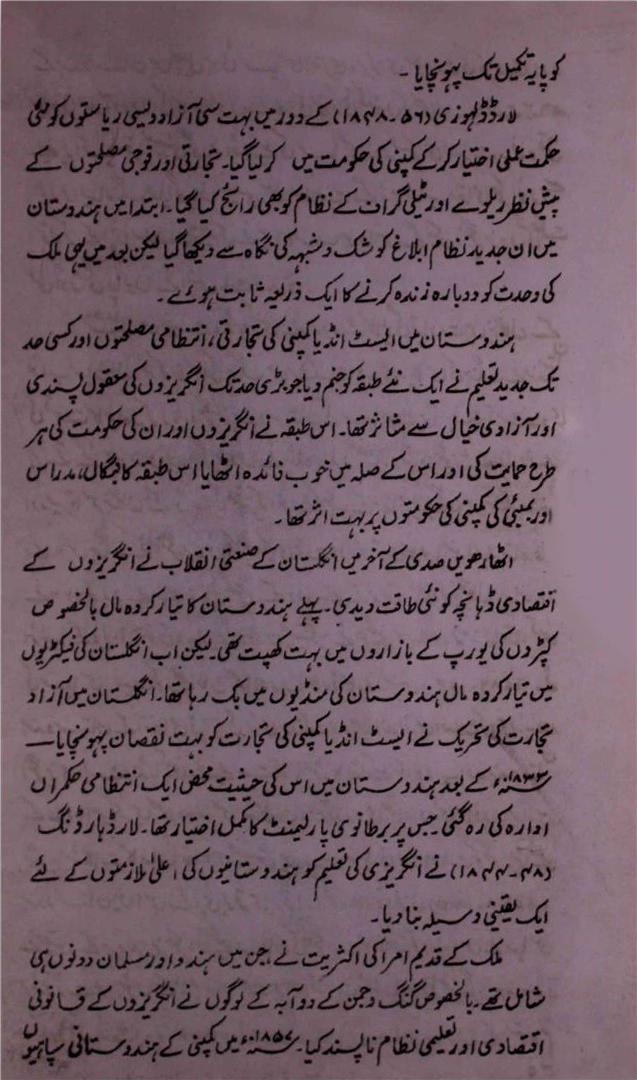 کو پایہ تکمیل تک پہونچایا -
لارڈ ڈلہوزی (۵۶-۱۸۴۸) کے دور میں بہت سی آزاد دیسی ریاستوں کو نئی
حکمت عملی اختیار کر کے کمپنی کی حکومت میں کر لیا گیا۔ تجارتی اور فوجی مصلحتوں کے
پیش نظر ریلوے اور ٹیلی گراف کے نظام کو بھی رائج کیا گیا۔ ابتدا میں ہندوستان
میں ان جدید نظام ابلاغ کو شک و شبہہ کی نگاہ سے دیکھا گیا لیکن بعد میں یہی ملک
کی وحدت کو دوبارہ زندہ کرنے کا ایک ذریعہ ثابت ہوئے۔
ہندوستان میں ایسٹ انڈیا کمپنی کی تجارتی، انتظامی مصلحتوں اور کسی حد
تک جدید تعلیم نے ایک نئے طبقہ کو جنم دیا جو بڑی حد تک انگریزوں کی معقول پسندی
اور آزادی خیال سے متاثر تھا۔ اس طبقہ نے انگریزوں اور ان کی حکومت کی ہر
طرح حمایت کی اور اس کے صلہ میں خوب فائدہ اٹھایا اس طبقہ کا بنگال، مدراس
اور بمبئی کی کمپنی کی حکومتوں پر بہت اثر تھا۔
اٹھارھویں صدی کے آخر میں انگلستان کے صنعتی انقلاب نے انگریزوں کے
اقتصادی ڈھانچہ کو نئی طاقت دیدی۔ پہلے ہندوستان کا تیار کردہ مال بالخصوص
کپڑوں کی یورپ کے بازاروں میں بہت کھپت تھی۔ لیکن اب انگلستان کی فیکٹریوں
میں تیار کردہ مال ہندوستان کی منڈیوں میں بک رہا تھا۔ انگلستان میں آزاد
تجارت کی تحریک نے ایسٹ انڈیا کمپنی کی تجارت کو بہت نقصان پہونچایا —
۱۸۳۳ء کے بعد ہندوستان میں اس کی حیثیت محض ایک انتظامی حکمراں
ادارہ کی رہ گئی جس پر برطانوی پارلیمنٹ کا مکمل اختیار تھا۔ لارڈ ہارڈنگ
(۴۸-۱۸۴۴) نے انگریزی کی تعلیم کو ہندوستانیوں کی اعلیٰ ملازمتوں کے لئے
ایک یقینی وسیلہ بنا دیا۔
ملک کے قدیم امرا کی اکثریت نے جن میں ہندو اور مسلمان دونوں ہی
شامل تھے۔ بالخصوص گنگ و جمن کے دو آبہ کے لوگوں نے انگریزوں کے قانونی
اقتصادی اور تعلیمی نظام ناپسند کیا۔ ۱۸۵۷ء میں کمپنی کے ہندوستانی سپاہیوں